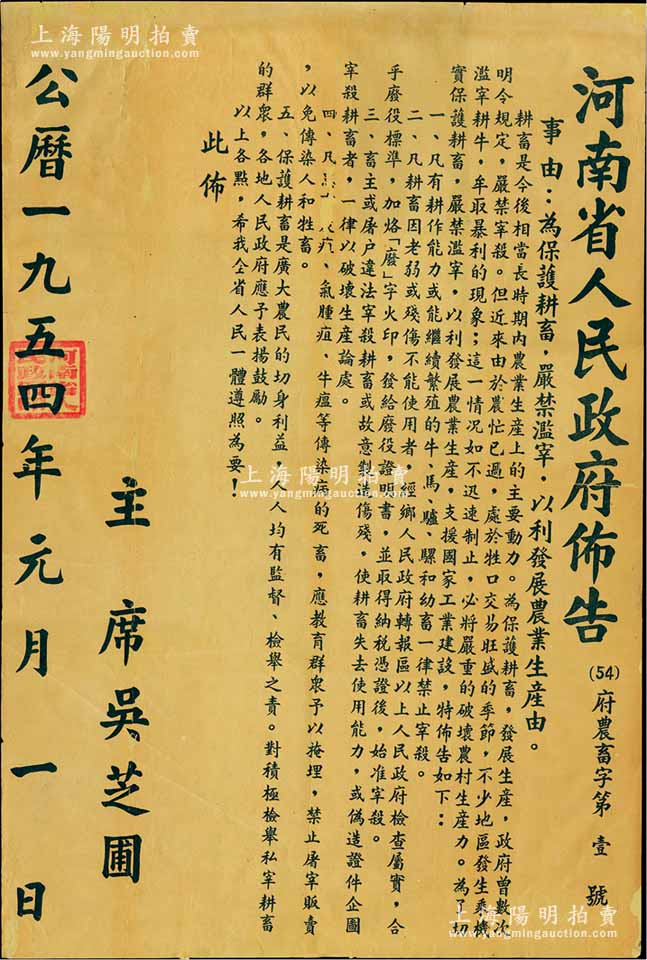 上海陽明拍賣
www.yangmingauction.com
河南省人民政府佈告
(54)府農畜字第壹號
事由：為保護耕畜，嚴禁濫宰，以利發展農業生産由。
耕畜是今後相當長時期內農業生産上的主要動力。為保護耕畜，發展生産，政府曾數次
明令規定，嚴禁宰殺。但近來由於農忙已過，處於牲口交易旺盛的季節，不少地區發生乘機
濫宰耕牛，牟取暴利的現象；這一情况如不迅速制止，必將嚴重的破壞農村生産力。為了切
實保護耕畜，嚴禁濫宰，以利發展農業生産，支援國家工業建設，特佈告如下：
一、凡有耕作能力或能繼續繁殖的牛、馬、驢、騾和幼畜一律禁止宰殺。
二、凡耕畜因老弱或殘傷不能使用者，經鄉人民政府轉報區以上人民政府檢查屬實，合
乎廢役標準，加烙「廢」字火印，發給廢役證明書，並取得納税憑證後，始准宰殺。
三、畜主或屠户違法宰殺耕畜或故意製造傷殘，使耕畜失去使用能力，或偽造證件企圖
宰殺耕畜者，一律以破壞生産論處。
四、凡 疽、氣腫疽、牛瘟等傳染病的死畜，應教育群衆予以掩埋，禁止屠宰販賣
，以免傳染人和牲畜。
五、保護耕畜是廣大農民的切身利益，人人均有監督、檢舉之責。對積極檢舉私宰耕畜
的群衆，各地人民政府應予表揚鼓勵。
以上各點，希我全省人民一體遵照為要！
此佈
主席吳芝圃
公曆一九五四年元月一日
上海陽明拍賣
www.yangmingauction.com
上海陽明拍賣
www.yangmingauction.com